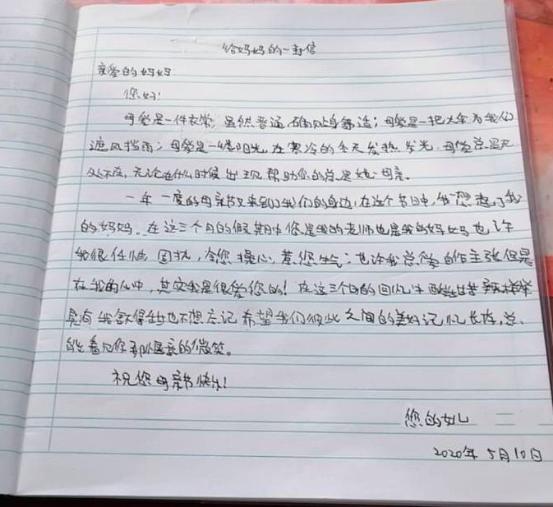 给妈妈的一封信
亲爱的妈妈
您好!
母爱是一件衣裳,虽然普通,却贴身舒适;母爱是一把大伞为我们
遮风挡雨;母爱是一缕阳光,在寒冷的冬天发热发光,母爱总是无
处不在,无论在什么时候出现帮助你的总是她:母亲。
一年一度的母亲节又来到了我们的身边,在这个节日中,我想起了我
的妈妈。在这三个月的假期中您是我的老师也是我的妈妈也许
我很任性固执,令您操心,惹您生气;也许我总爱自作主张但是
在我的心中,其实我是很爱您的!在这三个月的回忆中酸甜苦辣样样
具有我舍不得也不想忘记希望我们彼此之间的美好记忆长存,总
能看见你那温柔的微笑。
祝您母亲节快乐!
您的女儿
2020年5月10日